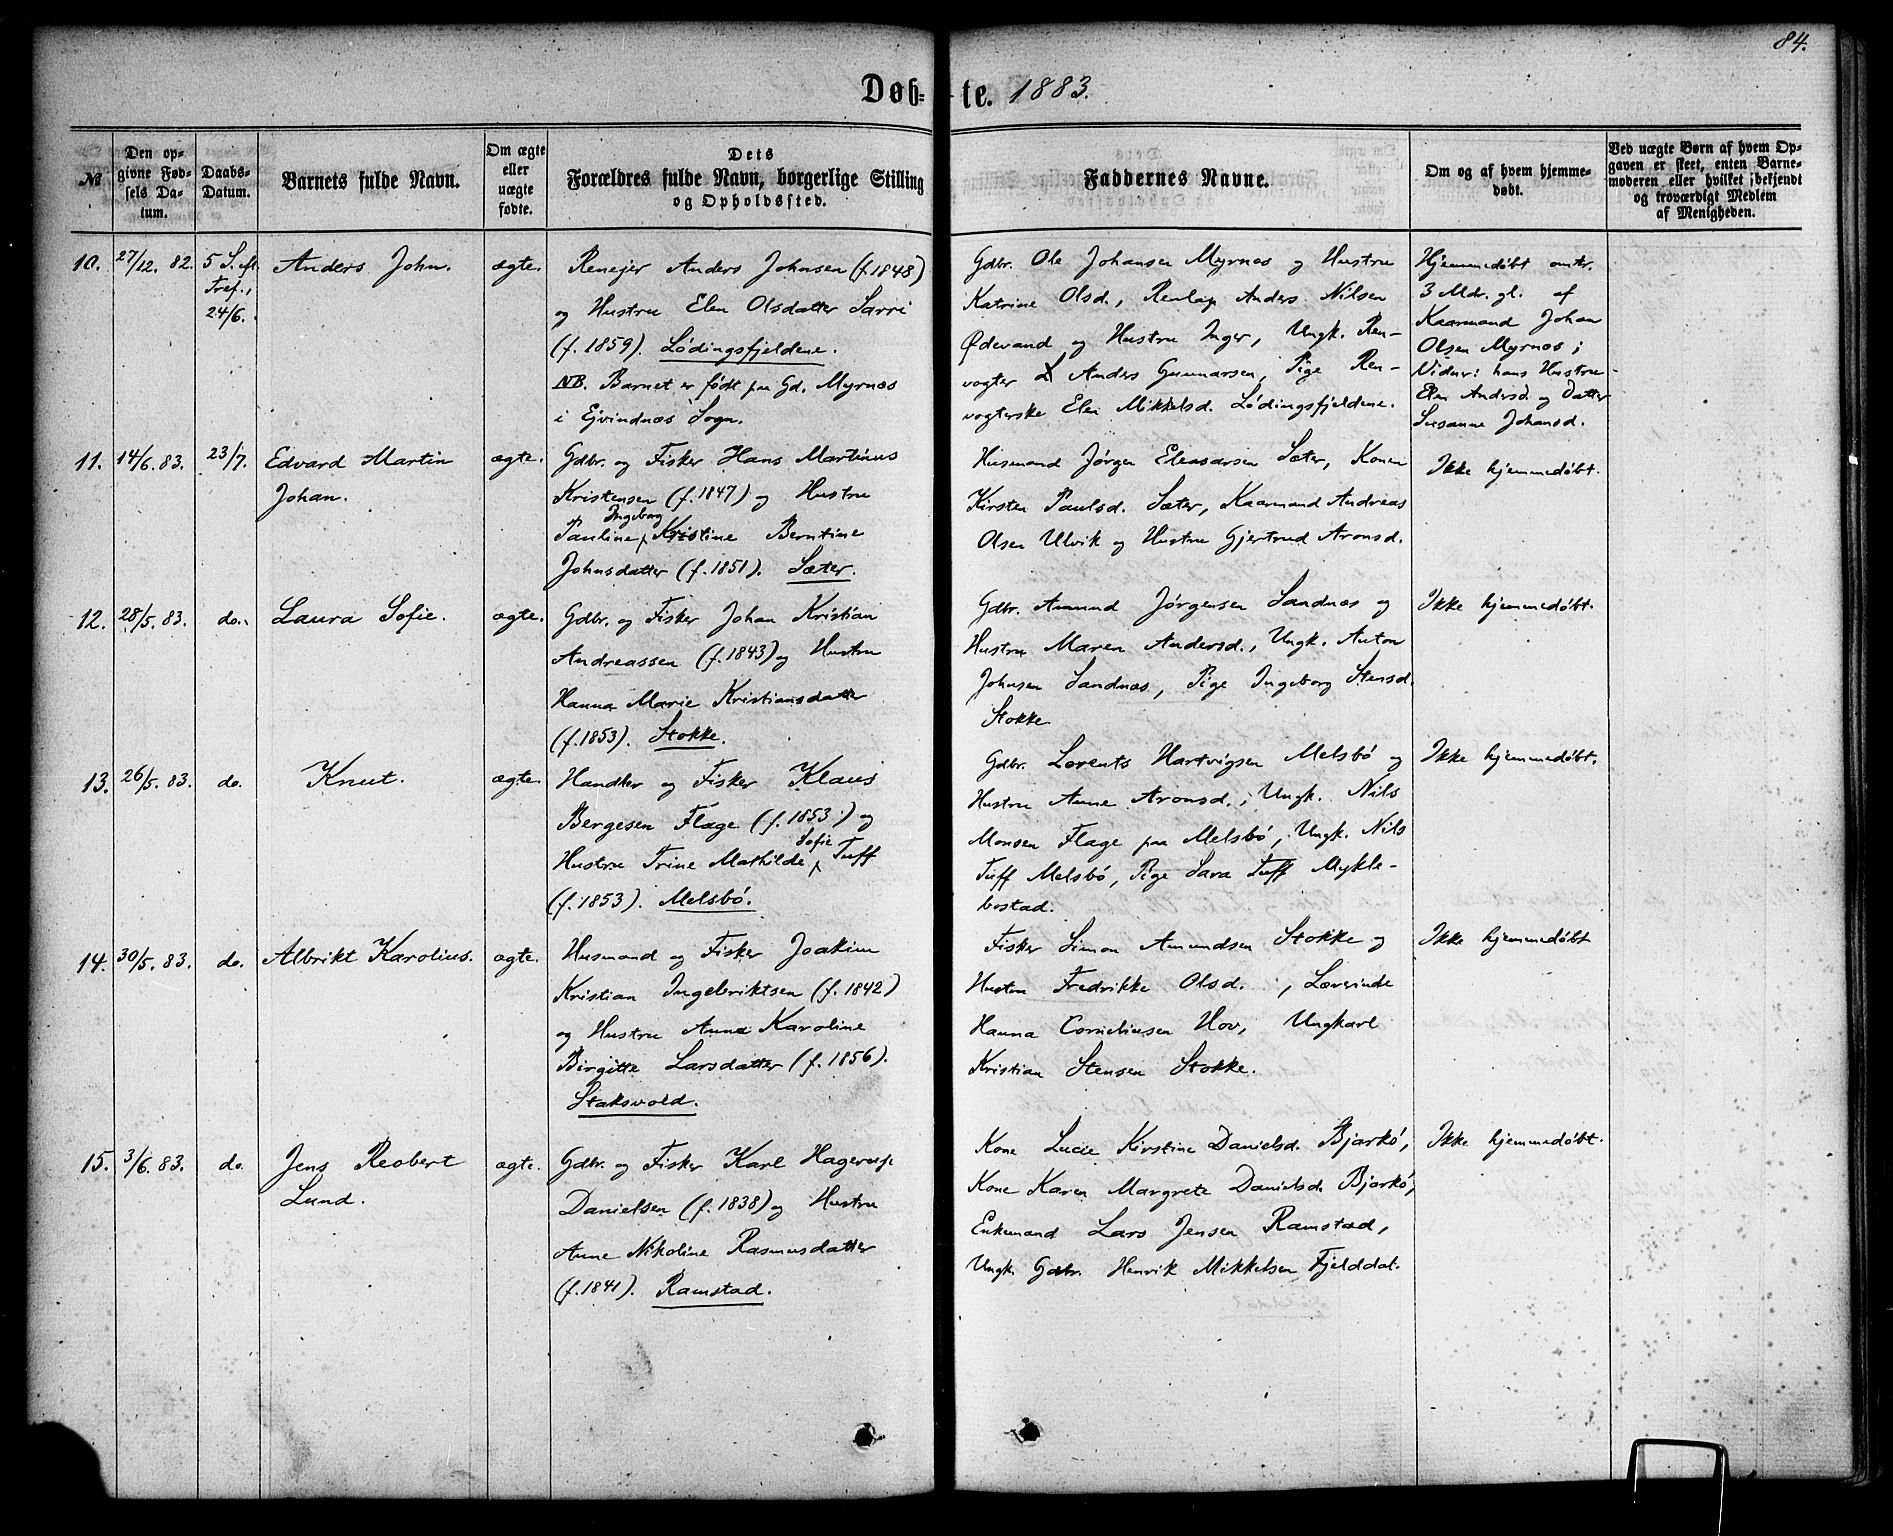 84.
Døb- te. 1883.
№
Den op-
givne Fød-
sels Da-
tum.
Daabs-
Datum.
Barnets fulde Navn.
Om ægte
eller
uægte
fødte.
Dets
Forældres fulde Navn, borgerlige Stilling
og Opholdssted.
Faddernes Navne.
Om og af hvem hjemme-
døbt.
Ved uægte Børn af hvem Op-
gaven er skeet, enten Barne-
moderen eller hvilket bekjendt
og troværdigt Medlem
af Menigheden.
10.
27/12. 82.
5 S. eft.
Tref.,
24/6.
Anders John.
ægte.
Reneier Anders Johnsen (f. 1848)
og Hustru Elen Olsdatter Sarri
(f. 1859). Lødingsfjeldene.
NB. Barnet er født paa Gd. Myrnæs
i Ejvindnæs Sogn.
Gdbr. Ole Johansen Myrnæs og Hustru
Katrine Olsd., Renlap Anders Nilsen
Ødevand og Hustru Inger, Ungk. Ren-
vogter Anders Gunnarsen, Pige Ren-
vogterske Elen Mikkelsd. Lødingsfjeldene.
Hjemmedøbt omtr.
3 Mdr. gl. af
Kaarmand Johan
Olsen Myrnæs;
Vidner: hans Hustru
Elen Andersd. og Datter
Susanne Johansd.
11.
14/6. 83.
23/7.
Edvard Martin
Johan.
ægte.
Gdbr. og Fisker Hans Martinus
Kristensen (f. 1847) og Hustru
Ingeborg
Pauline Kristine Berntine
Johnsdatter (f. 1851). Sæter.
Husmand Jørgen Eleasarsen Sæter, Konen
Kirsten Paulsd. Sæter, Kaarmand Andreas
Olsen Ulvik og Hustru Gjertrud Aronsd.
Ikke hjemmedøbt.
12.
28/5. 83.
do.
Laura Sofie.
ægte.
Gdbr. og Fisker Johan Kristian
Andreassen (f. 1843) og Hustru
Hanna Marie Kristiansdatter
(f. 1853). Stokke.
Gdbr. Amund Jørgensen Sandnæs og
Hustru Maren Andersd., Ungk. Anton
Johnsen Sandnæs, Pige Ingeborg Stensd.
Stokke
Ikke hjemmedøbt.
13.
26/5. 83.
do.
Knut.
ægte.
Handler og Fisker Klaus
Bergesen Flage (f. 1853) og
Sofie
Hustru Trine Mathilde Tuff
(f. 1853). Melsbø.
Gdbr. Lorents Hartvigsen Melsbø og
Hustru Anne Aronsd., Ungk. Nils
Monsen Flage paa Melsbø, Ungk. Nils
Tuff Melsbø, Pige Sara Tuff Mykle-
bostad.
Ikke hjemmedøbt.
14.
30/5. 83.
do.
Albrikt Karolius.
ægte.
Husmand og Fisker Joakim
Kristian Ingebriktsen (f. 1842)
og Hustru Anna Karoline
Birgitte Larsdatter (f. 1856).
Staksvold.
Fisker Simon Amundsen Stokke og
Hustru Fredrikke Olsd., Lærerinde
Hanna Corneliusen Hov, Ungkarl
Kristian Stensen Stokke.
Ikke hjemmedøbt
15.
3/6. 83.
do.
Jens Reobert
Lund.
ægte.
Gdbr. og Fisker Karl Hagerup
Danielsen (f. 1838) og Hustru
Anne Nikoline Rasmusdatter
(f. 1841). Ramstad.
Kone Lucie Kirstine Danielsd. Bjarkø,
Kone Karen Margrete Danielsd. Bjarkø,
Enkemand Lars Jensen Ramstad,
Ungk. Gdbr. Henrik Mikkelsen Fjelddal.
Ikke hjemmedøbt.